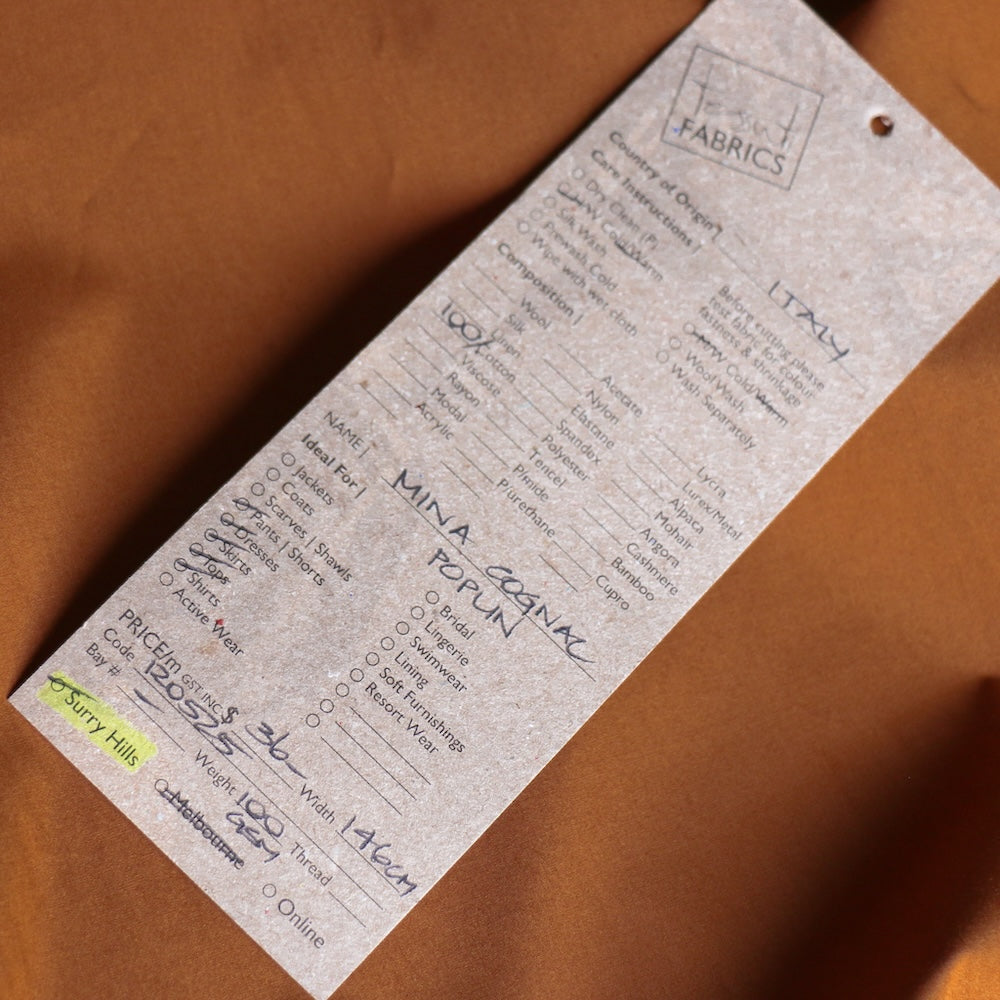 FABRICS
Country of Origin | ITALY
Care Instructions |
Dry Clean (P)
H/W Cold/Warm
Silk Wash
Prewash, Cold
Wipe with wet cloth
Before cutting please
test fabric for colour
fastness & shrinkage
M/W Cold/Warm
Wool Wash
Wash Separately
Composition |
Wool
Silk
Linen
100% Cotton
Viscose
Rayon
Modal
Acrylic
Acetate
Nylon
Elastane
Spandex
Polyester
Tencel
P/mide
P/urethane
Lycra
Lurex/Metal
Alpaca
Mohair
Angora
Cashmere
Bamboo
Cupro
NAME | MINA COGNAC
POPLIN
Ideal For |
Jackets
Coats
Scarves | Shawls
Pants | Shorts
Dresses
Skirts
Tops
Shirts
Active Wear
Bridal
Lingerie
Swimwear
Lining
Soft Furnishings
Resort Wear
PRICE/m GST INC $ 36- Width 146CM
Code 120525 Weight 100 GSM Thread
Bay #
Surry Hills
Melbourne
Online